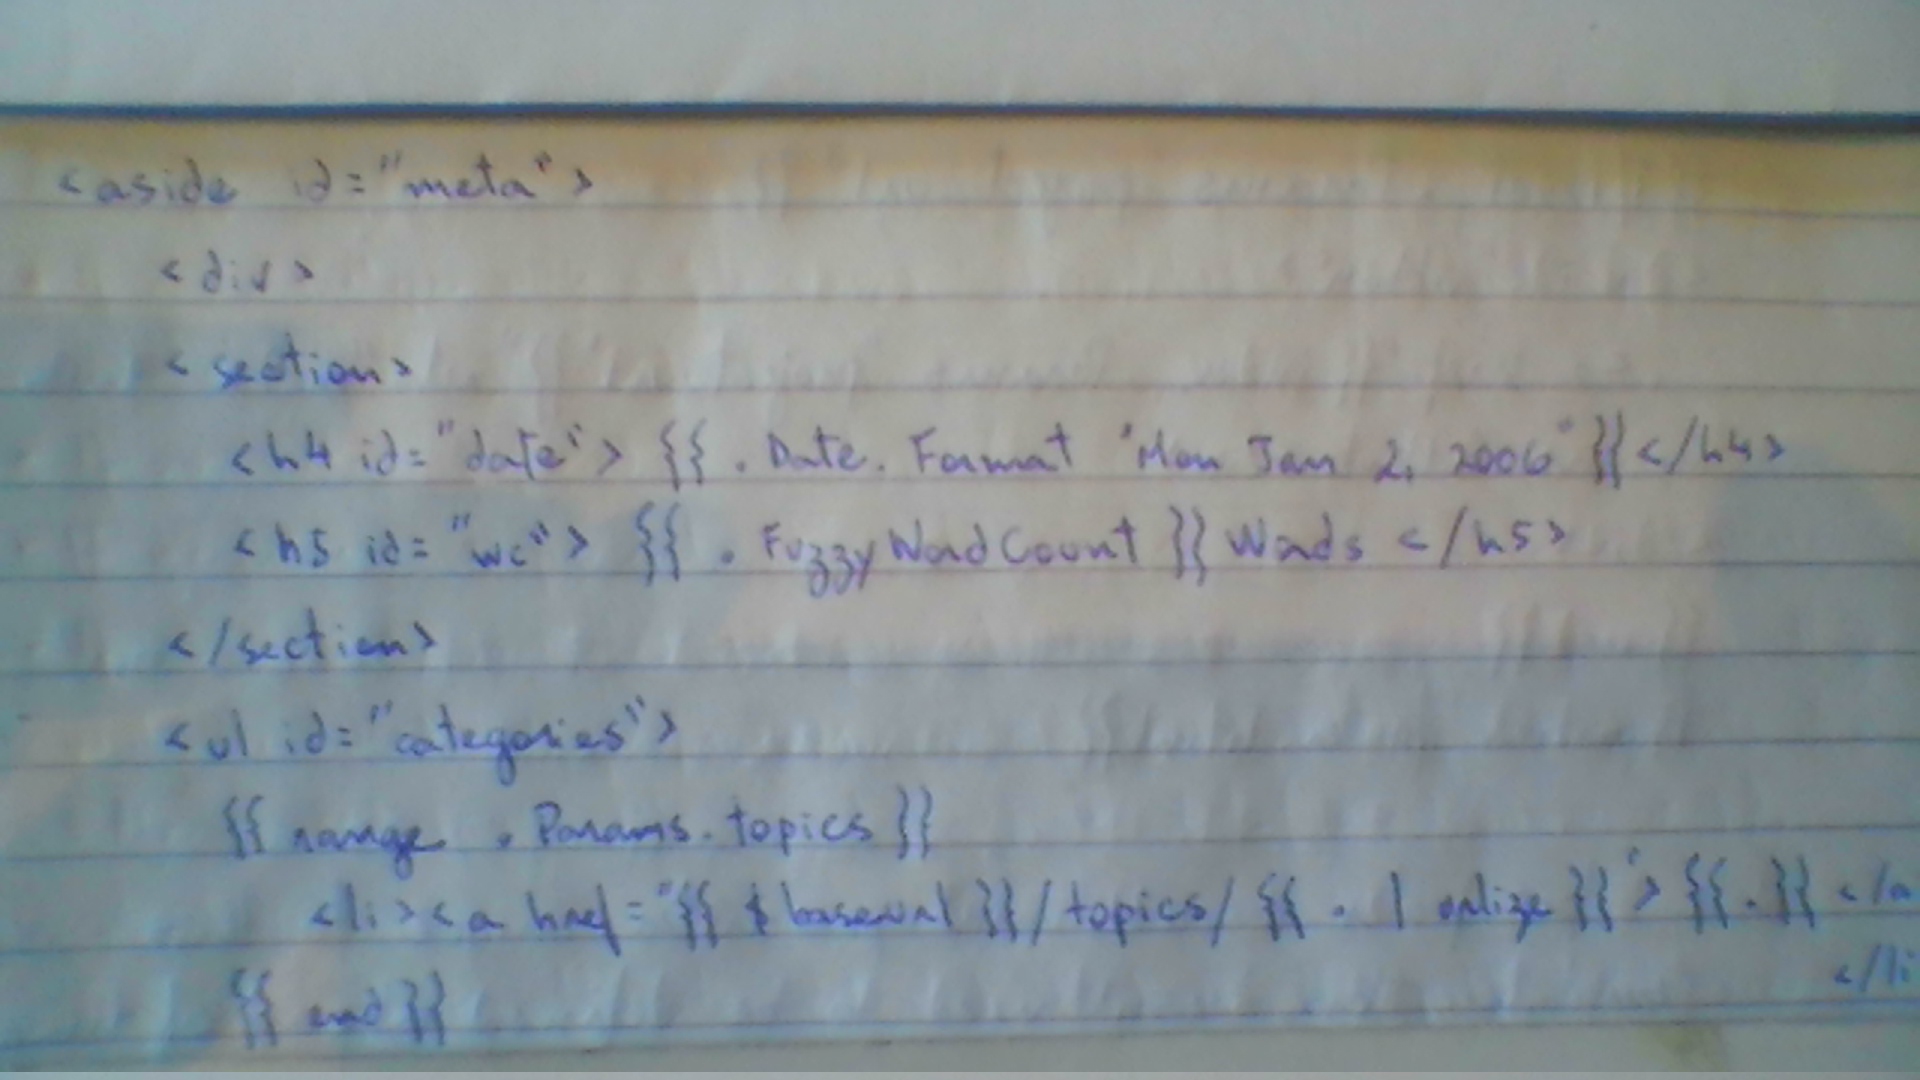 <aside id="meta">
<div>
<section>
<h4 id="date"> {{ .Date.Format "Mon Jan 2, 2006" }}</h4>
<h5 id="wc"> {{ .FuzzyWordCount }} Words </h5>
</section>
<ul id="categories">
{{ range .Params.topics }}
<li><a href="{{ $baseurl }}/topics/{{ . | urlize }}"> {{.}} </a
</li
{{ end }}